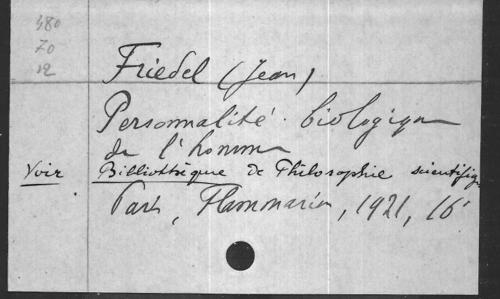 380
70
12
Friedel (Jean)
Personnalité biologique
de l'homme
Voir Bibliothèque de Philosophie scientifiq
Paris, Flammarion, 1921, 16°